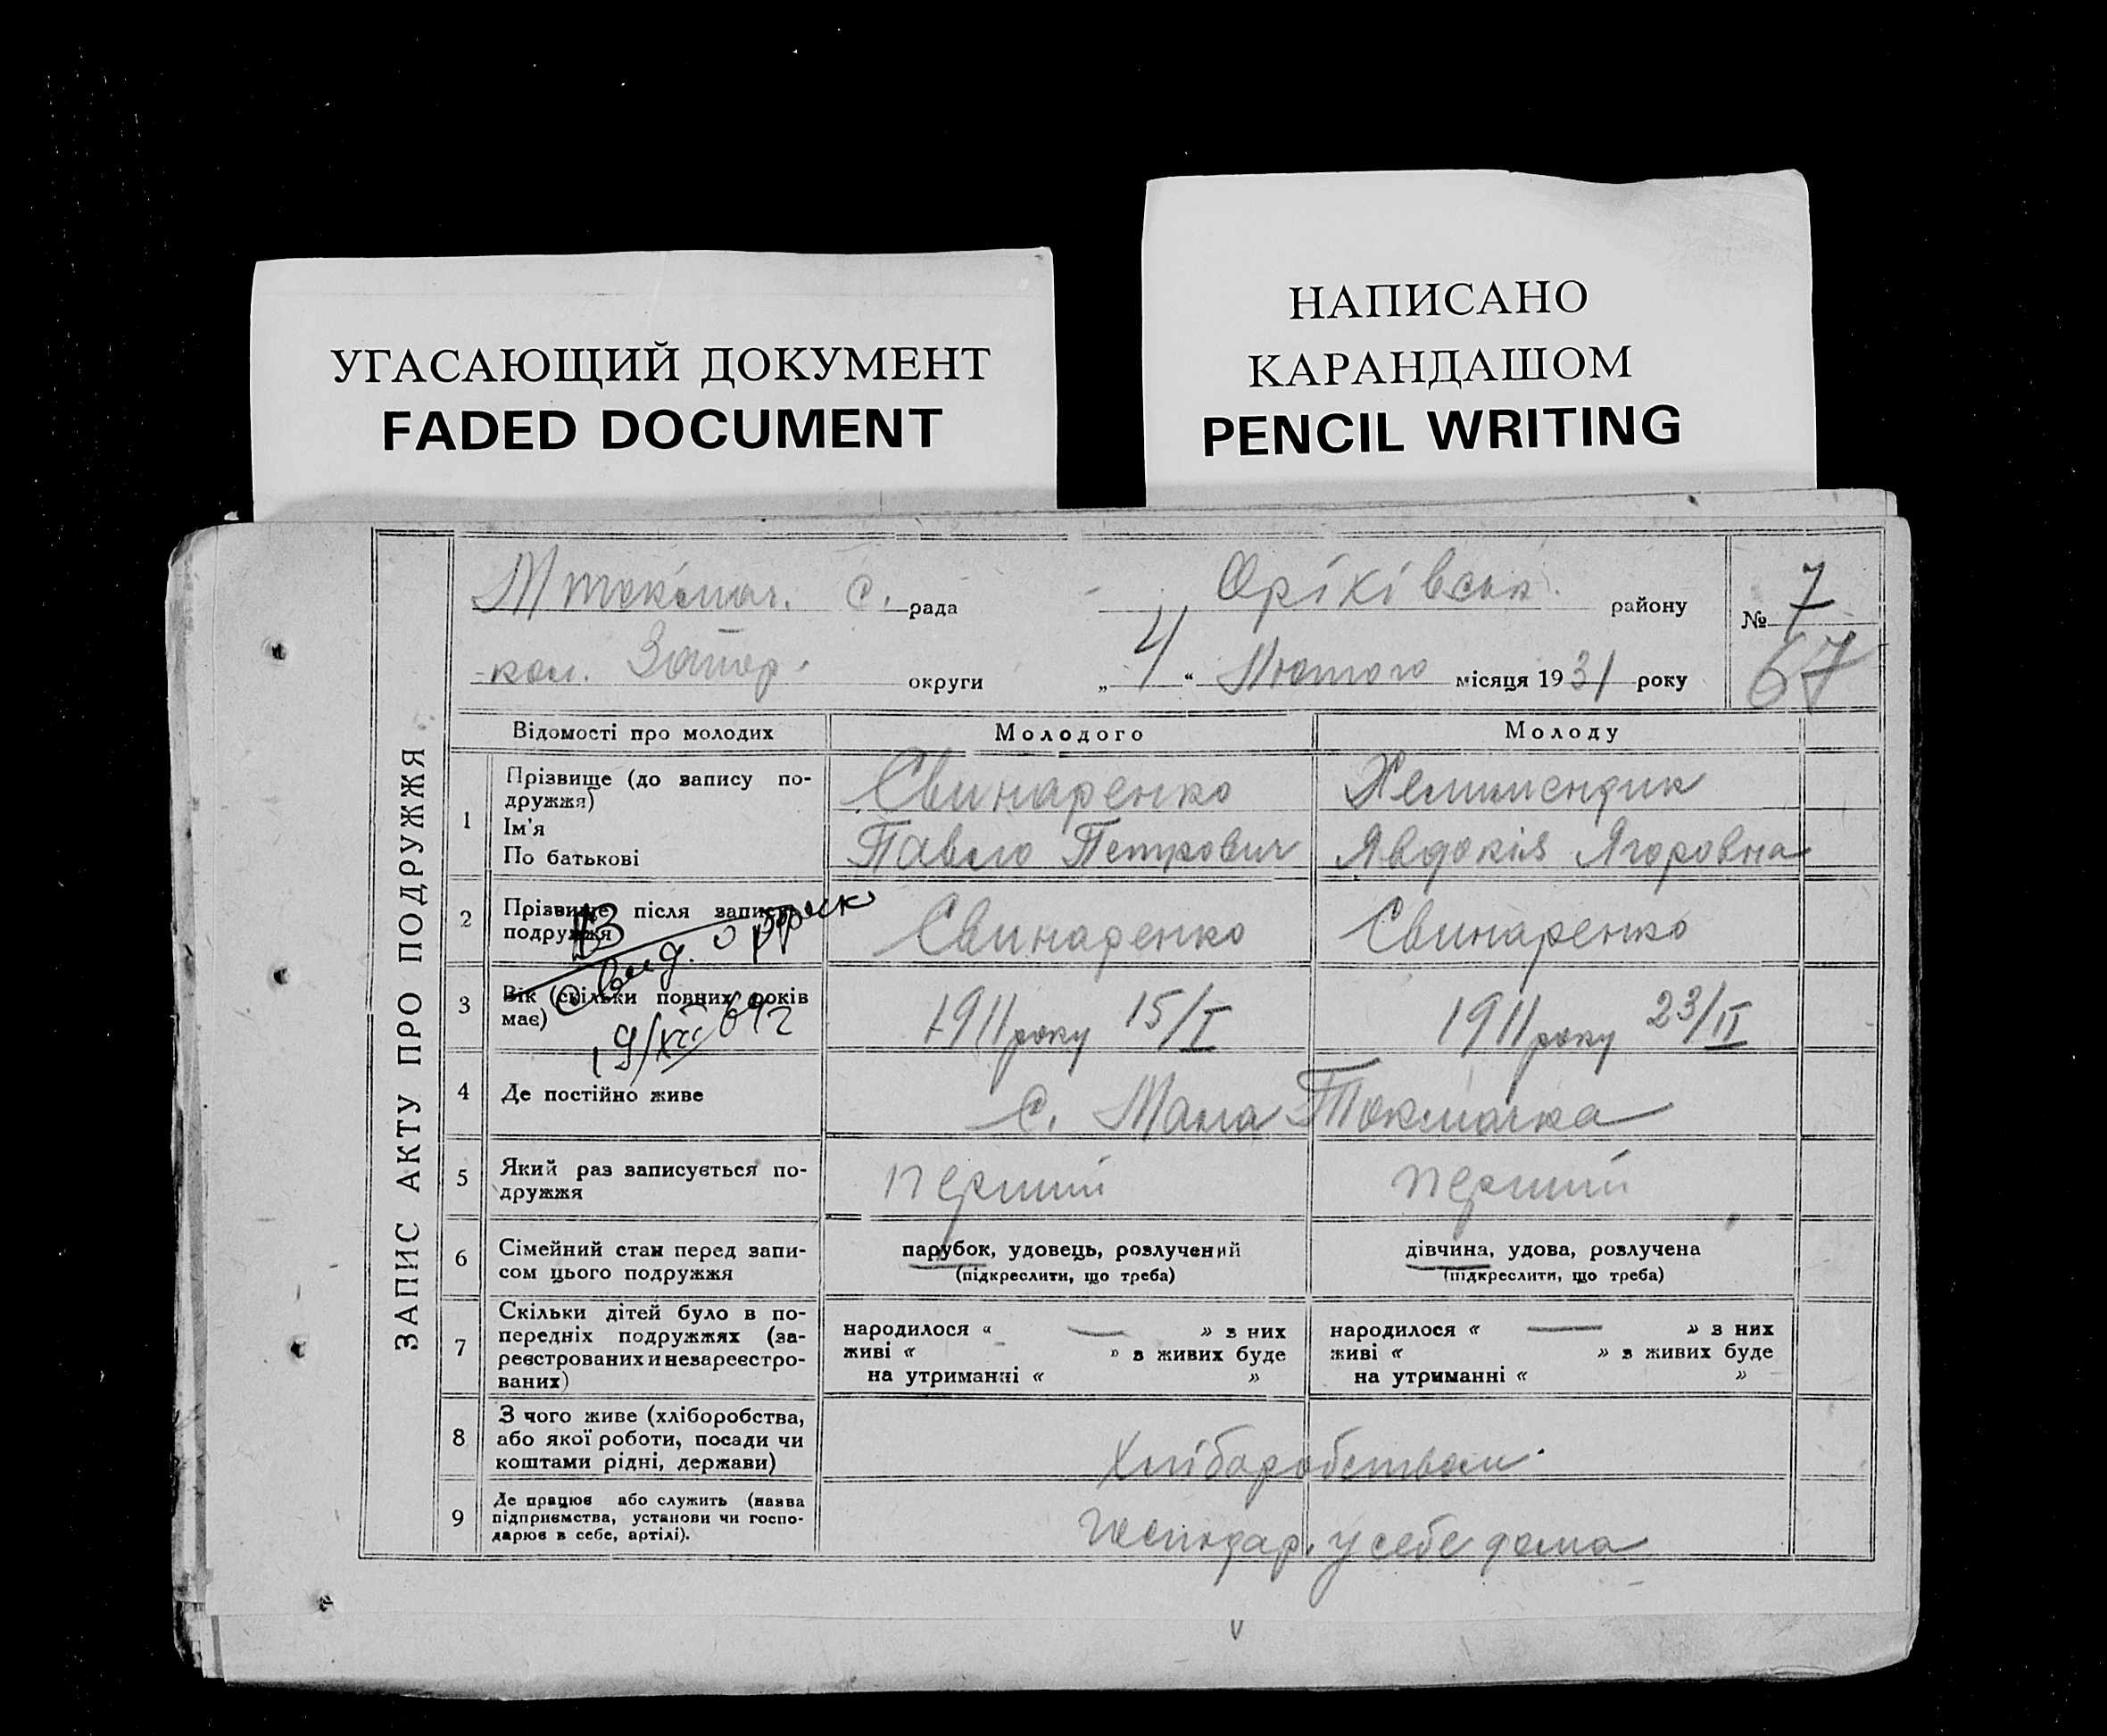 УГАСАЮЩИЙ ДОКУМЕНТ
FADED DOCUMENT
НАПИСАНО
КАРАНДАШОМ
PENCIL WRITING
ЗАПИС АКТУ ПРО ПОДРУЖЖЯ
МТокмач. С. рада Оріхівськ. району № 7
кол. Запор. округи „4“ Лютого місяця 1931 року 67
Відомості про молодих Молодого Молоду
1 Прізвище (до запису по-
дружжя) Свинаренко
Ім'я
По батькові Павло Петрович Явдокія Ягоровна
2 Прізвище після запису
подружжя Свинаренко Свинаренко
3 Вік (скільки повних років
має) 1911 року 15/I 1911 року 23/II
4 Де постійно живе с. Мала Токмачка
5 Який раз записується по-
дружжя перший перший
6 Сімейний стан перед запи-
сом цього подружжя
парубок, удовець, розлучений
(підкреслити, що треба)
дівчина, удова, розлучена
(підкреслити, що треба)
7 Скільки дітей було в по-
передніх подружжях (за-
реєстрованих и незареєстро-
ваних)
народилося « — » з них
живі « » з живих буде
на утриманні « »
народилося « — » з них
живі « » з живих буде
на утриманні « »
8 З чого живе (хліборобства,
або якої роботи, посади чи
коштами рідні, держави)
Хліборобством
9 Де працює або служить (назва
підприємства, установи чи госпо-
дарює в себе, артілі).
Господар. у себе дома